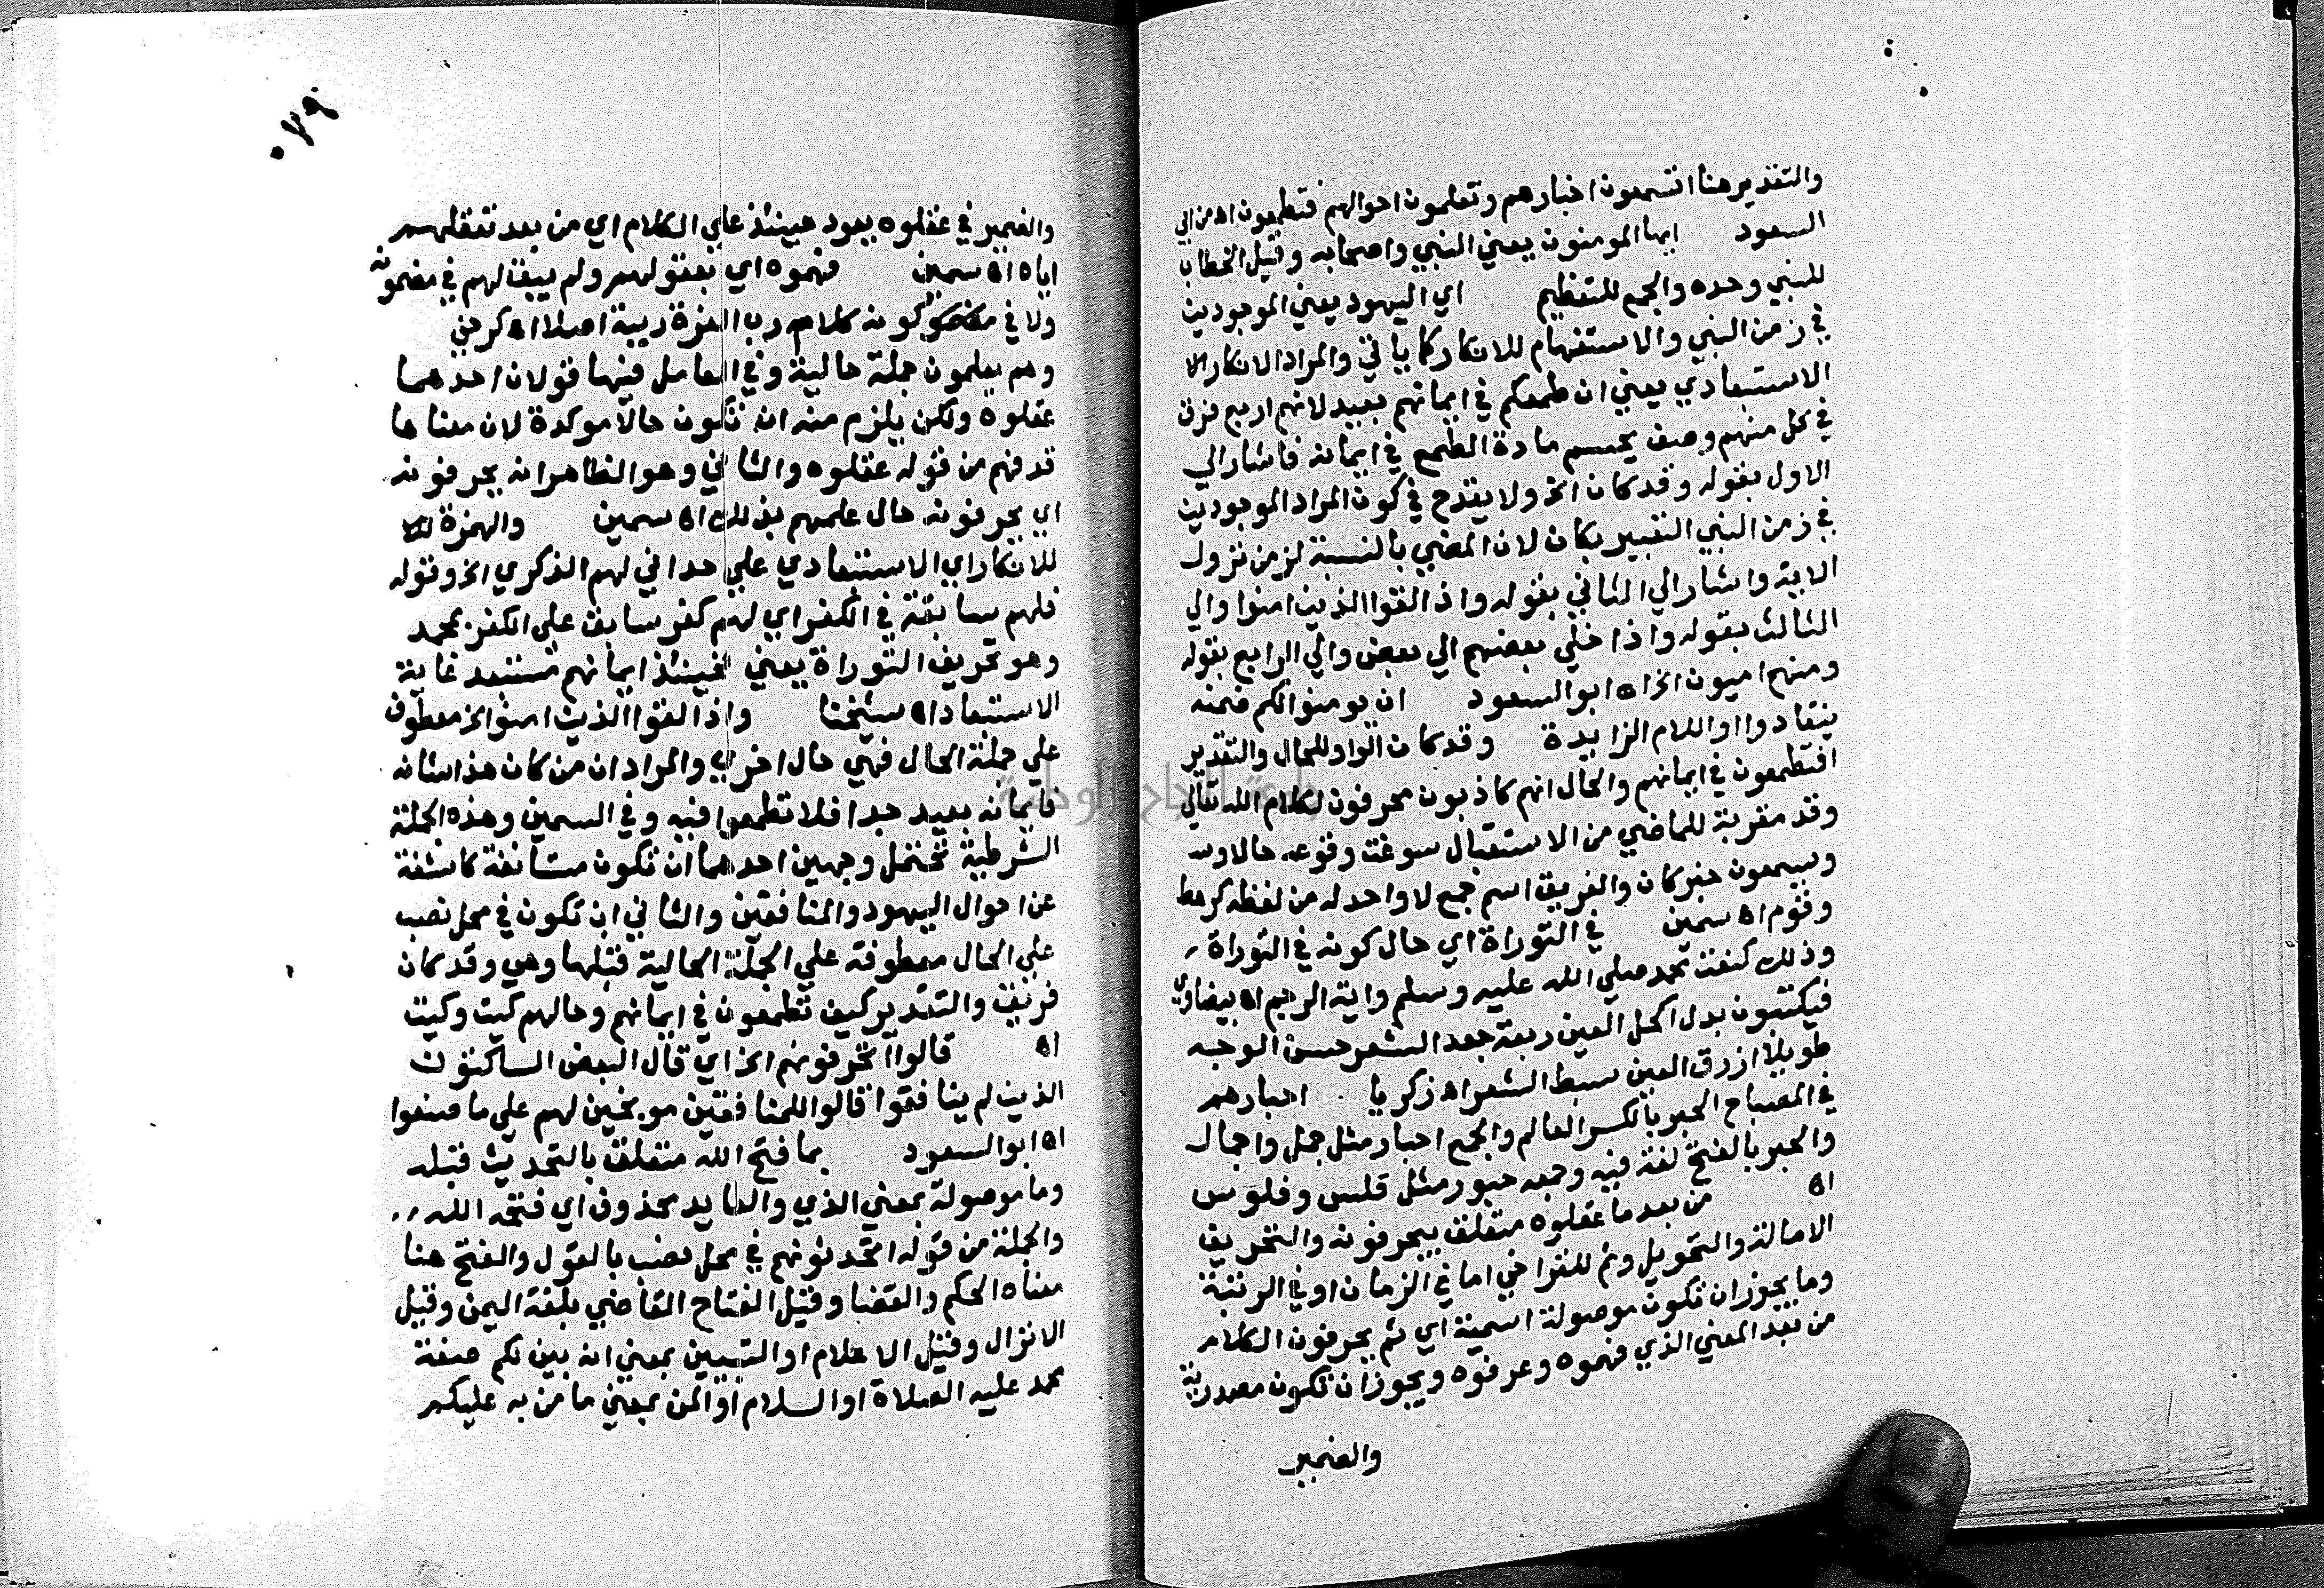 والتقدير هنا اتسمعون اخبارهم وتعلمون احوالهم فتطمعون اه من ابي
السعود ايها المومنون يعني النبي واصحابه وقيل الخطاب
للنبي وحده والجمع للتعظيم اي اليهود يعني الموجودين
في زمن النبي والاستفهام للانكار كما ياتي والمراد الانكار الا
الاستبعادي يعني ان طمعكم في ايمانهم بعيد لانهم اربع فرق
في كل منهم وصف يحسم مادة الطمع في ايمانه فاشار الي
الاول بقوله وقد كان الخ ولا يقدح في كون المراد الموجودين
في زمن النبي التعبير بكان لان المضي بالنسبة لزمن نزول
الاية واشار الي الثاني بقوله واذا لقوا الذين امنوا والي
الثالث بقوله واذا خلي بعضهم الي بعض والي الرابع بقوله
ومنهم اميون الخ اه ابو السعود ان يومنوا لكم ضمنه
ينقادوا او اللام الزايدة وقد كان الواو للحال والتقدير
افتطمعون في ايمانهم والحال انهم كاذبون محرفون لكلام الله تعالي
وقد مقربة للماضي من الاستقبال سوغت وقوعه حالا و
ويسمعون خبر كان والفريق اسم جمع لا واحد له من لفظه كرهط
وقوم اه سمين في التوراة اي حال كونه في التوراة
وذلك كنعت محمد صلي الله عليه وسلم واية الرجم اه بيضاوي
فيكتبون بدل اكحل العين ربعة جعد الشعر حسن الوجه
طويلا ازرق العين سبط الشعر اه زكريا احبارهم
في المصباح الحبر بالكسر العالم والجمع احبار مثل حمل واحمال
والحبر بالفتح لغة فيه وجمعه حبور مثل فلس وفلوس
اه من بعد ما عقلوه متعلق بيحرفونه والتحريف
الامالة والتحويل وثم للتراخي اما في الزمان او في الرتبة
وما يجوز ان تكون موصولة اسمية اي ثم يحرفون الكلام
من بعد المعني الذي فهموه وعرفوه ويجوز ان تكون مصدرية
والضمير
٠٧٩
والضمير في عقلوه يعود حينئذ علي الكلام اي من بعد تعقلهم
اياه اه سمين فهموه اي بعقولهم ولم يبق لهم في مضمونه
ولا في كونه كلام رب العزة ريبة اصلا اه كرخي
وهم يعلمون جملة حالية وفي العامل فيها قولان احدهما
عقلوه ولكن يلزم منه ان تكون حالا موكدة لان معناها
قد فهم من قوله عقلوه والثاني وهو الظاهر انه يحرفونه
اي يحرفونه حال علمهم بذلك اه سمين والهمزة للا
للانكار اي الاستبعادي علي حد اني لهم الذكري الخ وقوله
فلهم سابقة في الكفر اي لهم كفر سابق علي الكفر بمحمد
وهو تحريف التوراة يعني فحينئذ ايمانهم مستبعد غاية
الاستبعاد اه شيخنا واذا لقوا الذين امنوا الخ معطوف
علي جملة الحال فهي حال اخري والمراد ان من كان هذا شانه
فايمانه بعيد جدا فلا تطمعوا فيه وفي السمين وهذه الجملة
الشرطية تحتمل وجهين احدهما ان تكون مستانفة كاشفة
عن احوال اليهود والمنافقين والثاني ان تكون في محل نصب
علي الحال معطوفة علي الجملة الحالية قبلها وهي وقد كان
فريق والتقدير كيف تطمعون في ايمانهم وحالهم كيت وكيت
اه قالوا اتحدثونهم الخ اي قال البعض الساكتون
الذين لم ينافقوا قالوا للمنافقين موبخين لهم علي ما صنعوا
اه ابو السعود بما فتح الله متعلق بالتحديث قبله
وما موصولة بمعني الذي والعايد محذوف اي فتحه الله
والجملة من قوله اتحدثونهم في محل نصب بالقول والفتح هنا
معناه الحكم والقضا وقيل الفتاح القاضي بلغة اليمن وقيل
الانزال وقيل الاعلام او التبيين بمعني انه بين لكم صفة
محمد عليه الصلاة او السلام او المن بمعني ما من به عليكم